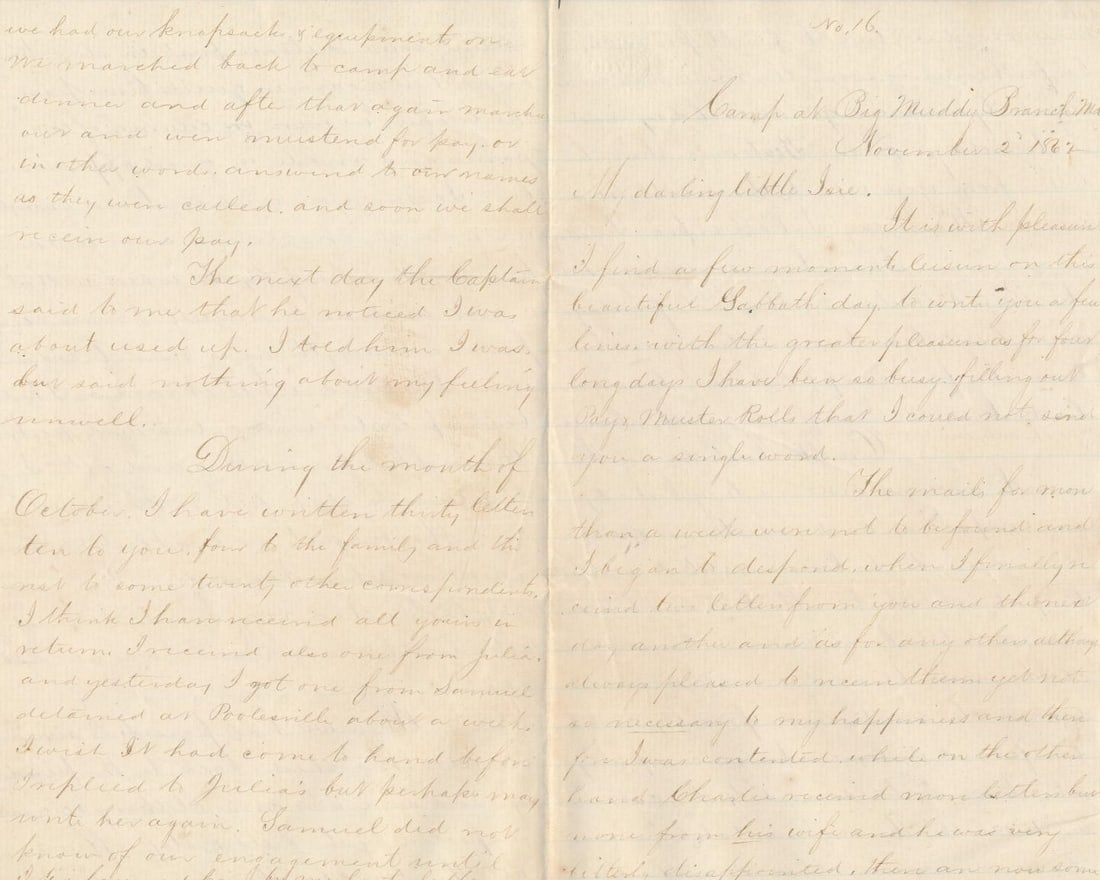 we had our knapsacks & equipments on
We marched back to camp and eat
dinner and after that again marched
out and were mustered for pay. or
in other words. answered to our names
as they were called. and soon we shall
receive our pay.
The next day the Captain
said to me that he noticed I was
about used up. I told him I was.
but said nothing about my feeling
unwell.
During the month of
October. I have written thirty letters
ten to you. four to the family and the
rest to some twenty other correspondents.
I think I have received all yours in
return. I received also one from Julia.
and yesterday I got one from Samuel
detained at Poolesville about a week.
I wish it had come to hand before
I replied to Julias but perhaps may
write her again. Samuel did not
know of our engagement until
No. 16.
Camp at Big Muddy Branch Md
November 2d 1862
My darling little Isie.
It is with pleasure
I find a few moments leisure on this
beautiful Sabbath day to write you a few
lines. with the greater pleasure as for four
long days I have been so busy filling out
Pay & Muster Rolls that I could not send
you a single word.
The mails for more
than a week were not to be found and
I began to despond. when I finally re
ceived two letters from you and the next
day another and as for any others although
always pleased to receive them yet not
so necessary to my happiness and there
fore I was contented while on the other
hand Charlie received more letters but
none from his wife and he was very
bitterly disappointed. there are now some